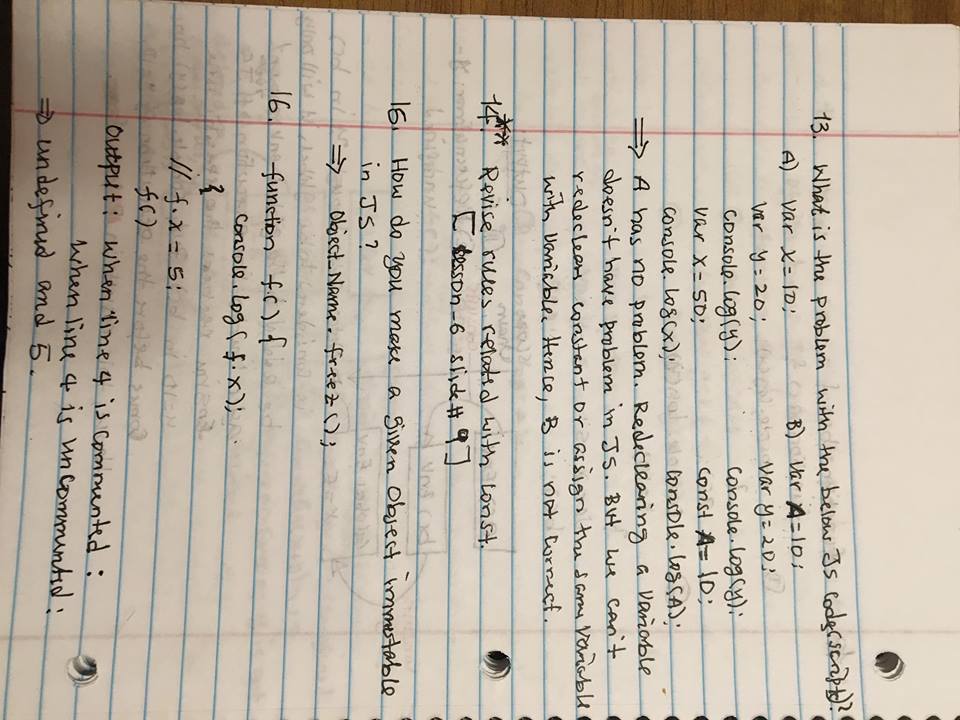 13. What is the problem with the below JS code(script)?
A) var x = 10;    B) var A = 10;
var y = 20;    var y = 20;
console.log(y);    console.log(y);
var x = 50;    const A = 10;
console.log(x);    console.log(A);
⇒ A has no problem. Redeclearing a variable
doesn't have problem in JS. But we can't
redeclear constant or assign the same variable
with variable. Hence, B is not correct.
14.** Revise rules related with const.
[lesson-6 slide # 9]
15. How do you make a given object immutable
in JS?
⇒ Object_Name.freez();
16. function f() {
console.log(f.x);
}
// f.x = 5;
f()
Output: when line 4 is commented:
when line 4 is uncommented:
⇒ undefined and 5.